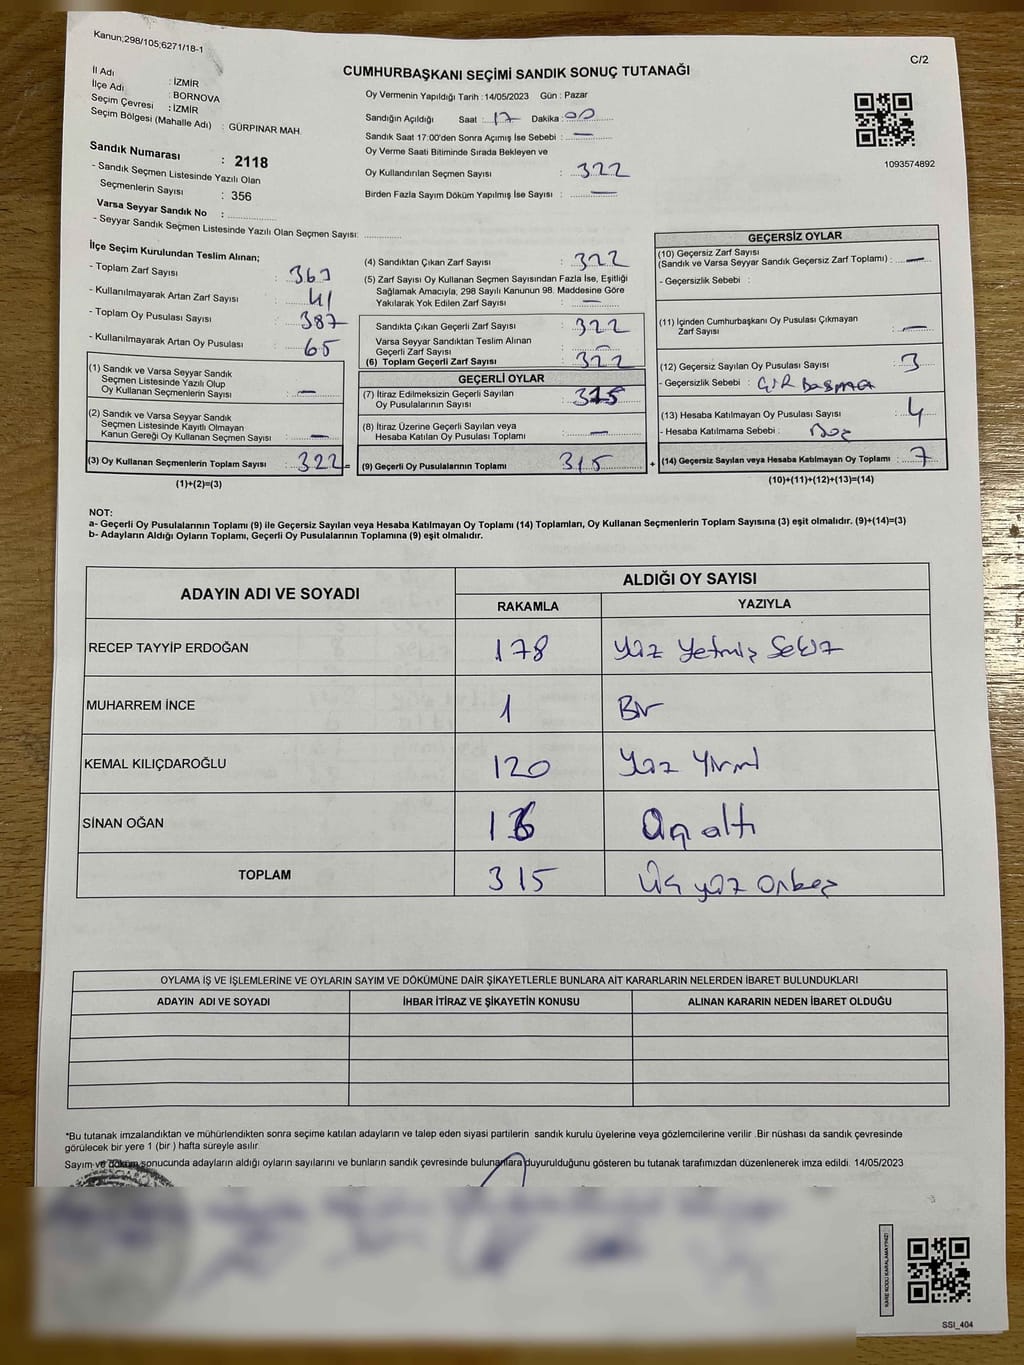 Kanun;298/105,6271/18-1
C/2
CUMHURBAŞKANI SEÇİMİ SANDIK SONUÇ TUTANAĞI
İl Adı : İZMİR
İlçe Adı : BORNOVA
Seçim Çevresi : İZMİR
Seçim Bölgesi (Mahalle Adı) : GÜRPINAR MAH.
Sandık Numarası : 2118
- Sandık Seçmen Listesinde Yazılı Olan
Seçmenlerin Sayısı : 356
Varsa Seyyar Sandık No :
- Seyyar Sandık Seçmen Listesinde Yazılı Olan Seçmen Sayısı:
Oy Vermenin Yapıldığı Tarih : 14/05/2023 Gün : Pazar
Sandığın Açıldığı Saat : 17 Dakika : 00
Sandık Saat 17:00'den Sonra Açımış İse Sebebi : —
Oy Verme Saati Bitiminde Sırada Bekleyen ve
Oy Kullandırılan Seçmen Sayısı : 322
Birden Fazla Sayım Döküm Yapılmış İse Sayısı : —
1093574892
İlçe Seçim Kurulundan Teslim Alınan;
- Toplam Zarf Sayısı : 363
- Kullanılmayarak Artan Zarf Sayısı : 41
- Toplam Oy Pusulası Sayısı : 387
- Kullanılmayarak Artan Oy Pusulası : 65
(1) Sandık ve Varsa Seyyar Sandık
Seçmen Listesinde Yazılı Olup
Oy Kullanan Seçmenlerin Sayısı : —
(2) Sandık ve Varsa Seyyar Sandık
Seçmen Listesinde Kayıtlı Olmayan
Kanun Gereği Oy Kullanan Seçmen Sayısı : —
(3) Oy Kullanan Seçmenlerin Toplam Sayısı : 322 =
(1)+(2)=(3)
(4) Sandıktan Çıkan Zarf Sayısı : 322
(5) Zarf Sayısı Oy Kullanan Seçmen Sayısından Fazla İse, Eşitliği
Sağlamak Amacıyla, 298 Sayılı Kanunun 98. Maddesine Göre
Yakılarak Yok Edilen Zarf Sayısı : —
Sandıkta Çıkan Geçerli Zarf Sayısı : 322
Varsa Seyyar Sandıktan Teslim Alınan
Geçerli Zarf Sayısı : —
(6) Toplam Geçerli Zarf Sayısı : 322
GEÇERLİ OYLAR
(7) İtiraz Edilmeksizin Geçerli Sayılan
Oy Pusulalarının Sayısı : 315
(8) İtiraz Üzerine Geçerli Sayılan veya
Hesaba Katılan Oy Pusulası Toplamı : —
(9) Geçerli Oy Pusulalarının Toplamı : 315 +
GEÇERSİZ OYLAR
(10) Geçersiz Zarf Sayısı
(Sandık ve Varsa Seyyar Sandık Geçersiz Zarf Toplamı) : —
- Geçersizlik Sebebi :
(11) İçinden Cumhurbaşkanı Oy Pusulası Çıkmayan
Zarf Sayısı : —
(12) Geçersiz Sayılan Oy Pusulası Sayısı : 3
- Geçersizlik Sebebi : Çift BASMA
(13) Hesaba Katılmayan Oy Pusulası Sayısı : 4
- Hesaba Katılmama Sebebi : Boş
(14) Geçersiz Sayılan veya Hesaba Katılmayan Oy Toplamı : 7
(10)+(11)+(12)+(13)=(14)
NOT:
a- Geçerli Oy Pusulalarının Toplamı (9) ile Geçersiz Sayılan veya Hesaba Katılmayan Oy Toplamı (14) Toplamları, Oy Kullanan Seçmenlerin Toplam Sayısına (3) eşit olmalıdır. (9)+(14)=(3)
b- Adayların Aldığı Oyların Toplamı, Geçerli Oy Pusulalarının Toplamına (9) eşit olmalıdır.
ADAYIN ADI VE SOYADI
ALDIĞI OY SAYISI
RAKAMLA YAZIYLA
RECEP TAYYİP ERDOĞAN 178 Yüz Yetmiş Sekiz
MUHARREM İNCE 1 Bir
KEMAL KILIÇDAROĞLU 120 Yüz Yirmi
SİNAN OĞAN 16 On altı
TOPLAM 315 Üç yüz Onbeş
OYLAMA İŞ VE İŞLEMLERİNE VE OYLARIN SAYIM VE DÖKÜMÜNE DAİR ŞİKAYETLERLE BUNLARA AİT KARARLARIN NELERDEN İBARET BULUNDUKLARI
ADAYIN ADI VE SOYADI İHBAR İTİRAZ VE ŞİKAYETİN KONUSU ALINAN KARARIN NEDEN İBARET OLDUĞU
*Bu tutanak imzalandıktan ve mühürlendikten sonra seçime katılan adayların ve talep eden siyasi partilerin sandık kurulu üyelerine veya gözlemcilerine verilir .Bir nüshası da sandık çevresinde
görülecek bir yere 1 (bir ) hafta süreyle asılır.
Sayım ve döküm sonucunda adayların aldığı oyların sayılarını ve bunların sandık çevresinde bulunanlara duyurulduğunu gösteren bu tutanak tarafımızdan düzenlenerek imza edildi. 14/05/2023
KARE KODU KARALAMAYINIZ!
SSI_404